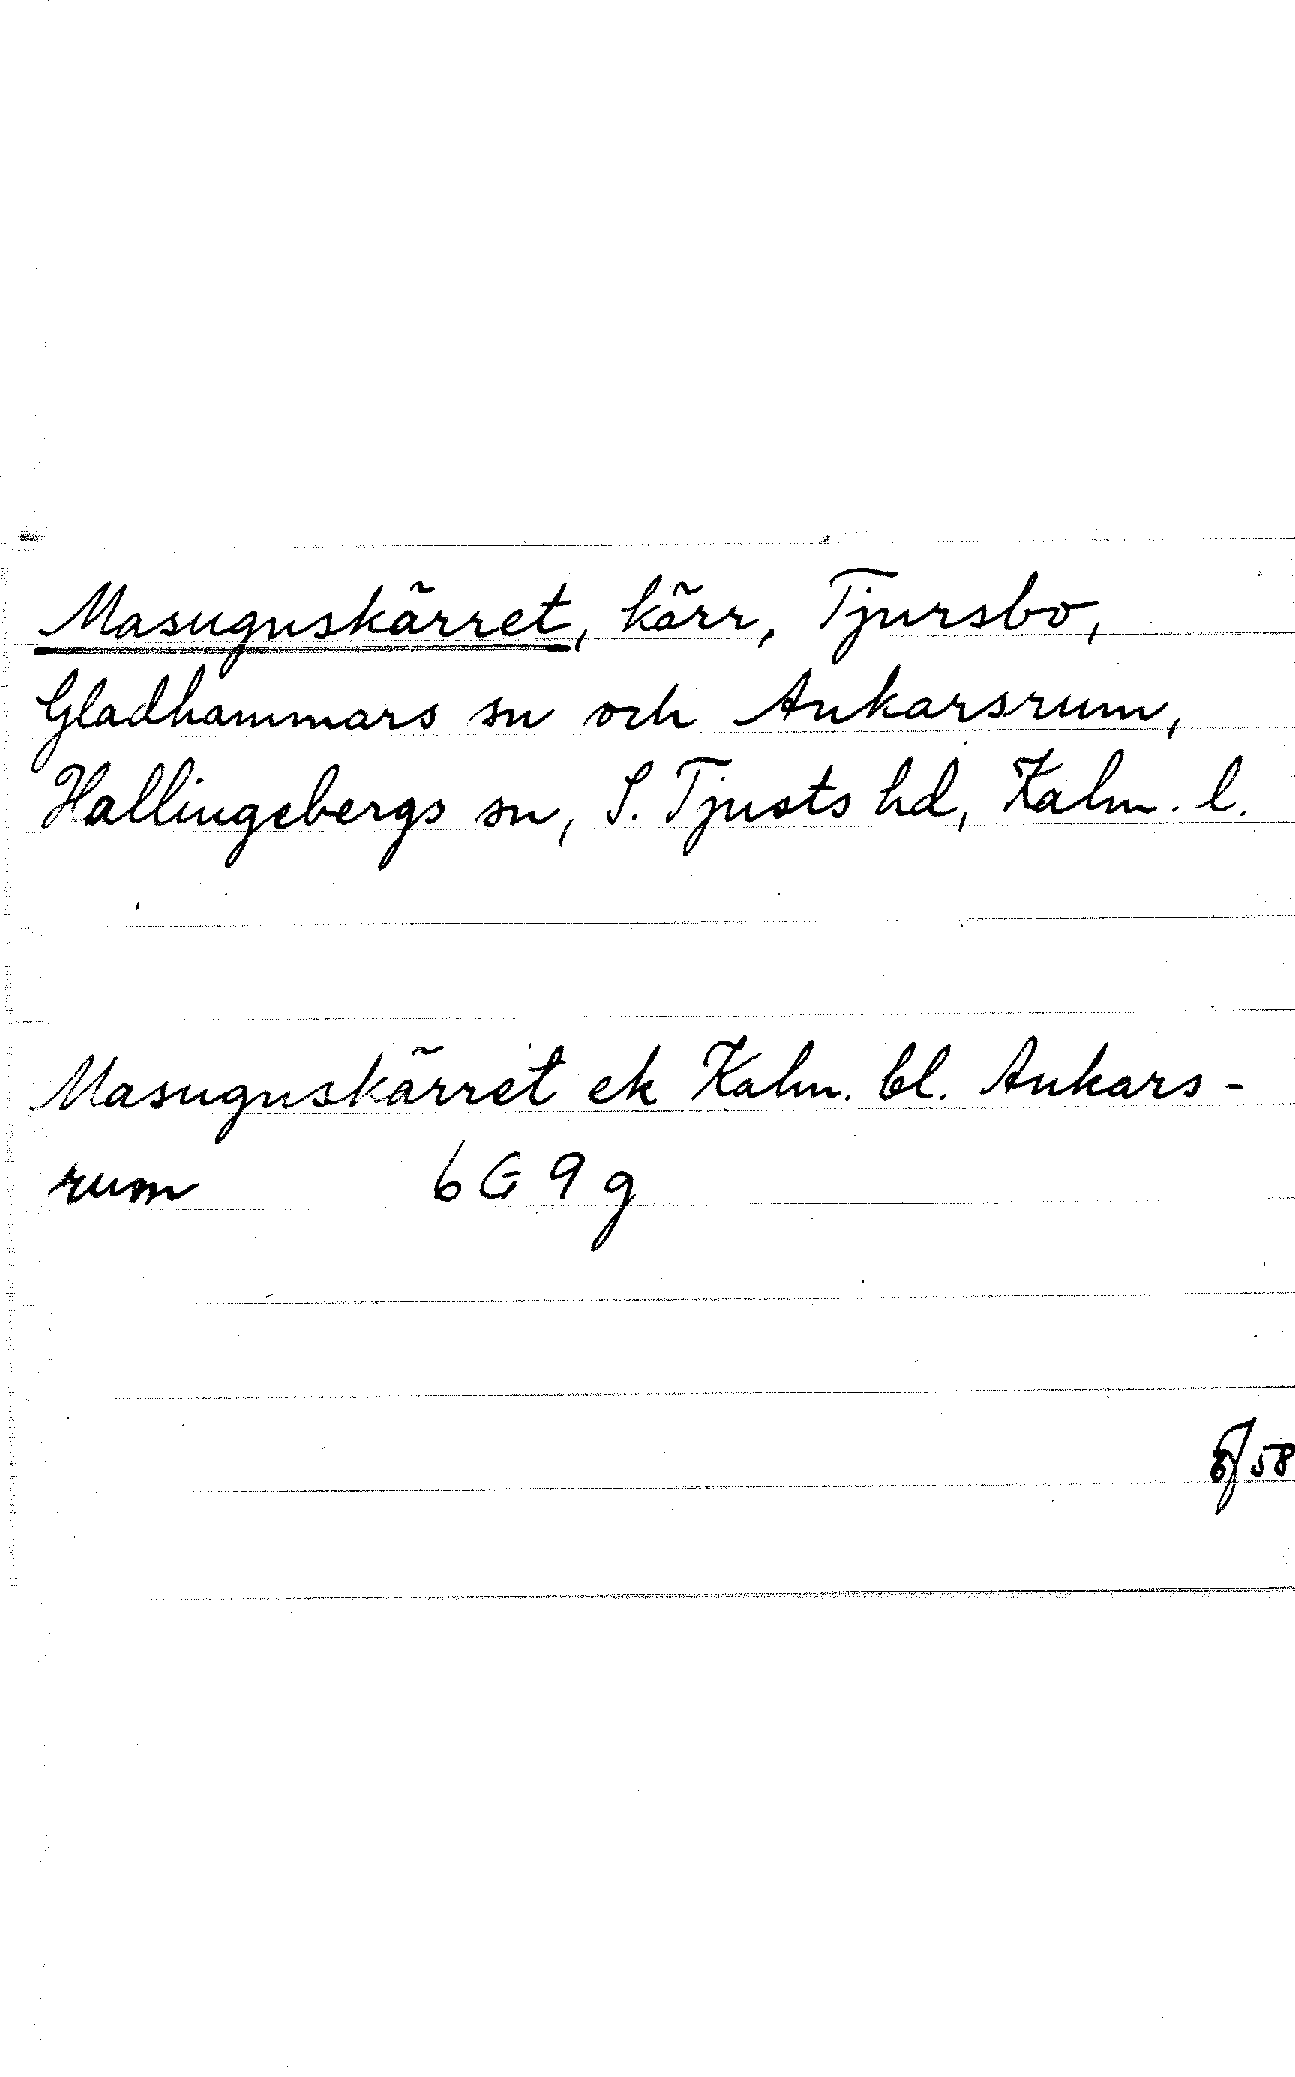 Masugnskärret, kärr, Tjursbo,
Gladhammars sn och Ankarsrum,
Hallingebergs sn, S. Tjusts hd, Kalm. l.
Masugnskärret ek Kalm. bl. Ankars-
rum 6 G 9 g
58